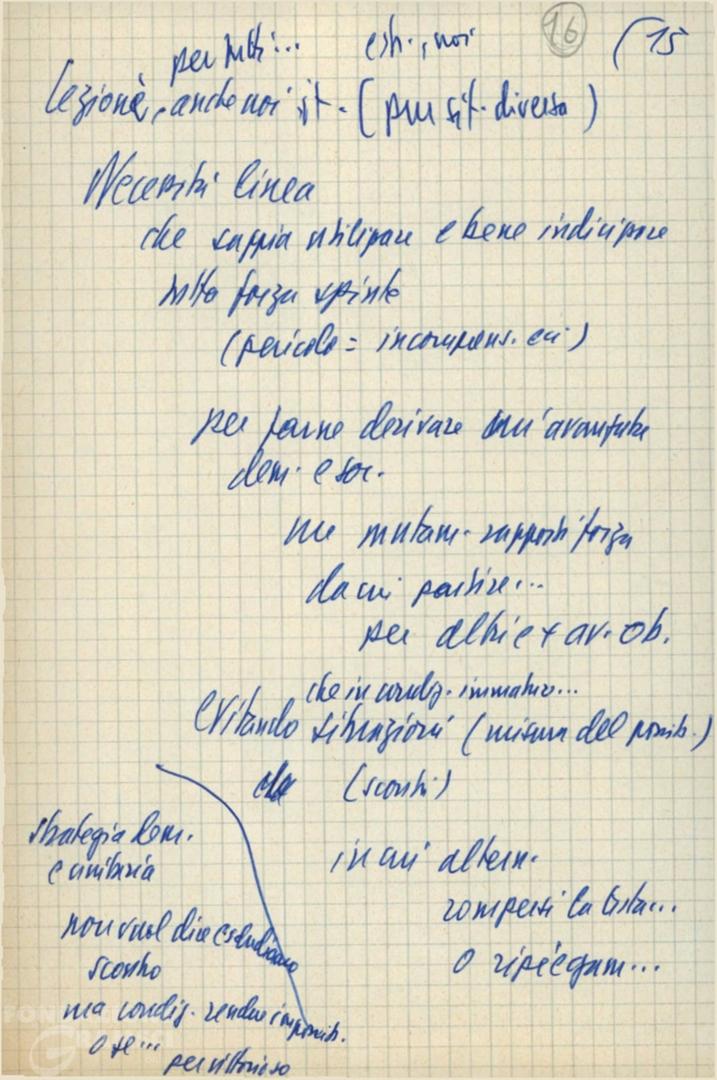 16
(15
per tutti... est., noi
lezione, anche noi it. (pur sit. diversa)
Necessità linea
che sappia utilizzare e bene indirizzare
tutta forza spinte
(pericolo = incomprens. ecc.)
per farne derivare un'avanzata
dem. e soc.
un mutam. rapporti forza
da cui partire...
per altri e + av. ob.
che in condiz. immature...
evitando situazioni (misura del possib.)
(scontri)
in cui altern.
rompersi la testa...
o ripiegam...
strategia dem.
e unitaria
non vuol dire escludiamo
scontro
ma condiz. rendere impossib.
o se...
per vittorioso